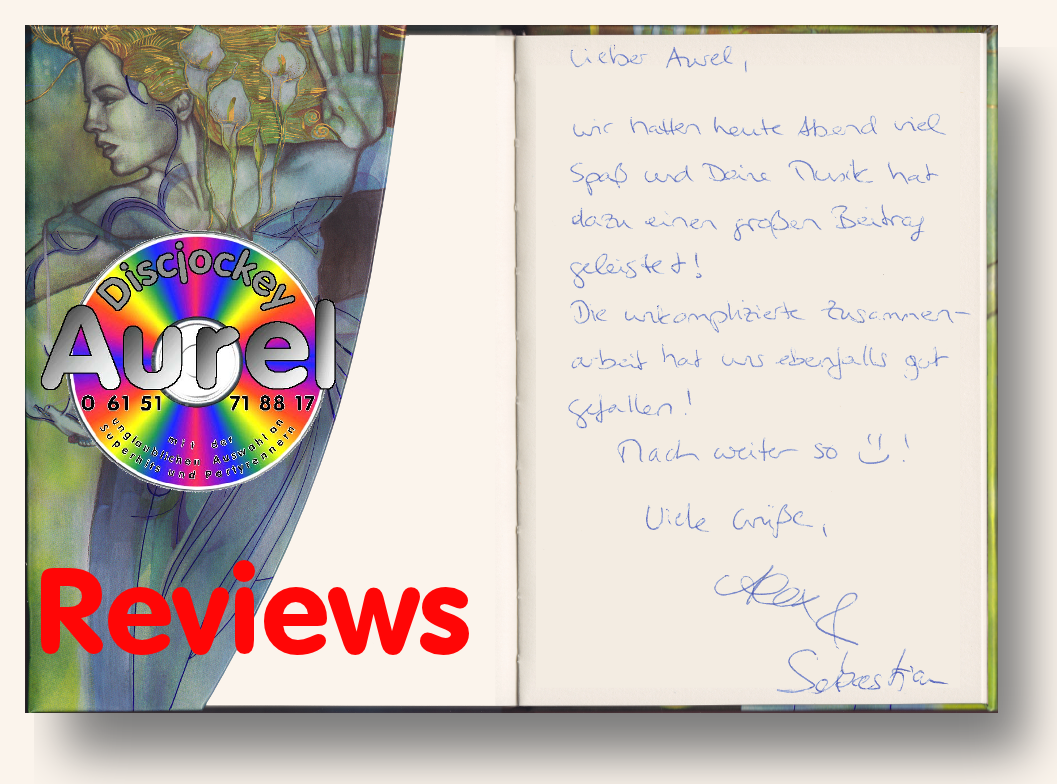 Discjockey
Aurel
0 61 51 71 88 17
mit der
unglaublichen Auswahl an
Superhits und Partyrennern
Reviews
Lieber Aurel,
wir hatten heute Abend viel
Spaß und Deine Musik hat
dazu einen großen Beitrag
geleistet!
Die unkomplizierte Zusammen-
arbeit hat uns ebenfalls gut
gefallen!
Mach weiter so :)!
Viele Grüße,
Alex &
Sebastian